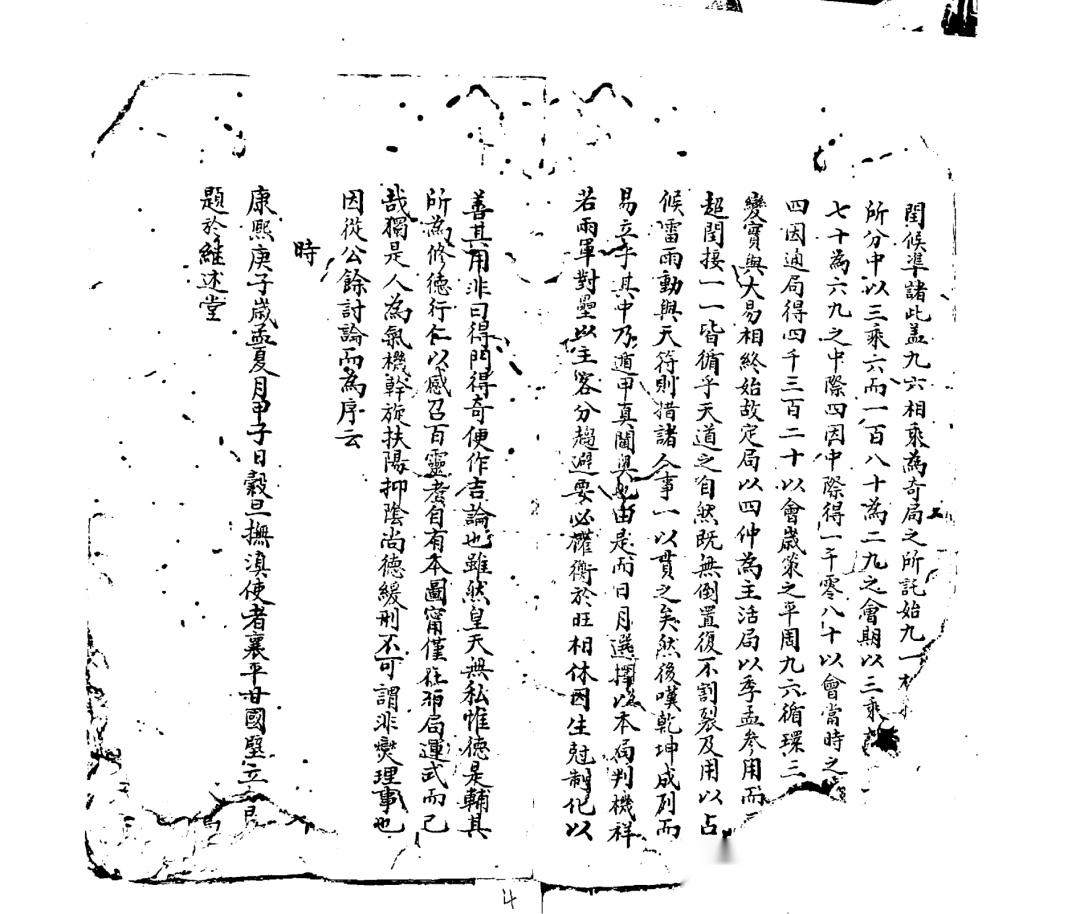 閏候準諸此盖九六相乘為奇局之所託始九一
所分中以三乘六而一百八十為二九之會期以三乘
七十為六九之中際四因中際得一千零八十以會當時之
四因通局得四千三百二十以會歲策之平周九六循環三
變實與大易相終始故定局以四仲為主活局以季孟參用而
超閏接一一皆循乎天道之自然既無倒置復不割裂及用以占
候雷雨動與天符則措諸人事一以貫之矣然後嘆乾坤成列而
易立乎其中乃遁甲真閫奧也由是而日月選擇以本局判機祥
若兩軍對壘以主客分趨避要必權衡於旺相休囚生尅制化以
善其用非曰得門得奇便作吉論也雖然皇天無私惟德是輔其
所為修德行仁以感召百靈者自有本圖甯僅在布局運式而已
哉獨是人為氣機幹旋扶陽抑陰尚德緩刑不可謂非燮理事也
因從公餘討論而為序云
時
康熙庚子歲孟夏月甲子日穀旦撫滇使者襄平甘國璧立
題於維述堂
4